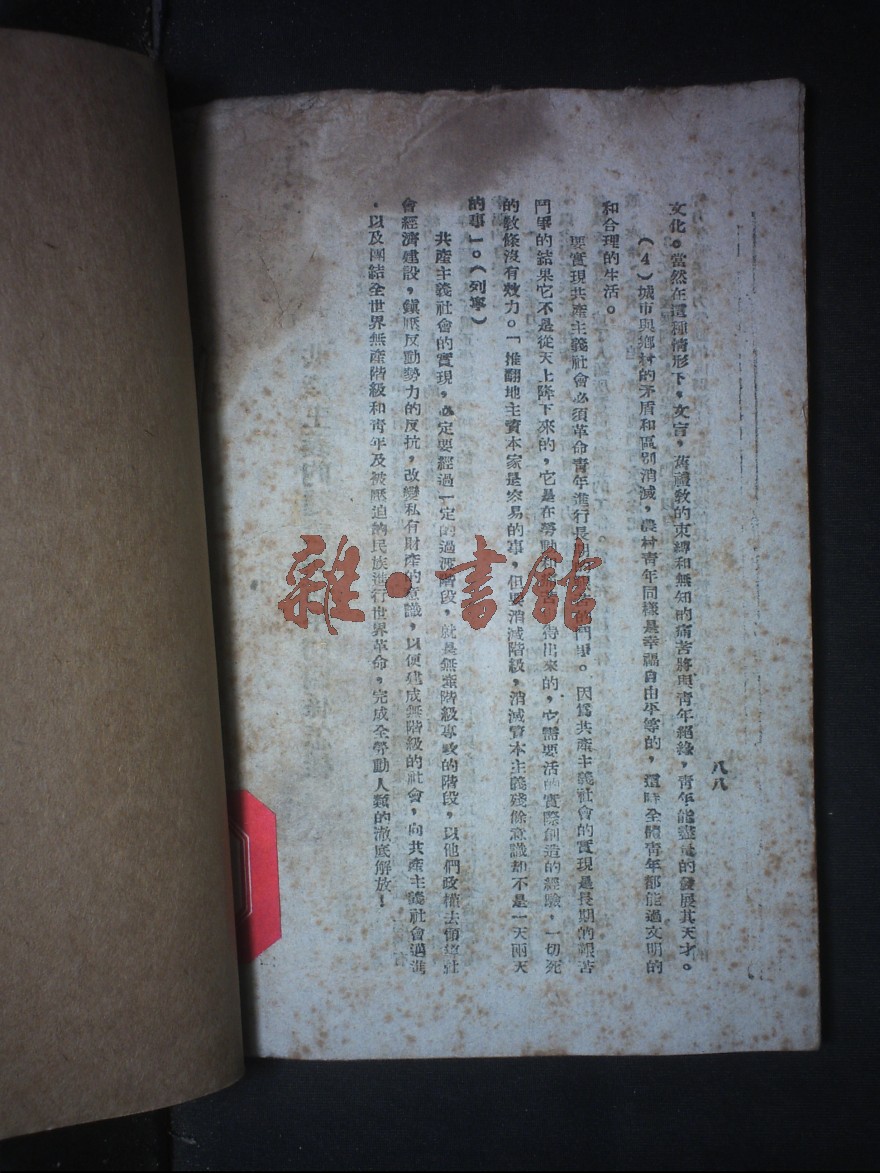 八八
文化。當然在這種情形下，文盲，舊禮教的束縛和無知的痛苦將與青年絕緣，青年能盡量的發展其天才。
（4）城市與鄉村的矛盾和區別消滅，農村青年同樣是幸福自由平等的，這時全體青年都能過文明的
和合理的生活。
要實現共產主義社會必須革命青年進行長期的艱苦的鬥爭。因爲共產主義社會的實現是長期的艱苦
鬥爭的結果它不是從天上降下來的，它是在勞動和得出來的，它需要活的實際創造的經驗，一切死
的敎條沒有效力。「推翻地主資本家是容易的事，但要消滅階級，消滅資本主義殘餘意識却不是一天兩天
的事」。（列寧）
共產主義社會的實現，必定要經過一定的過渡階段，就是無產階級專政的階段，以他們政權去領導社
會經濟建設，鎭壓反動勢力的反抗，改變私有財產的意識，以便建成無階級的社會，向共產主義社會邁進
，以及團結全世界無產階級和青年及被壓迫的民族進行世界革命，完成全勞動人類的澈底解放！
雜·書館